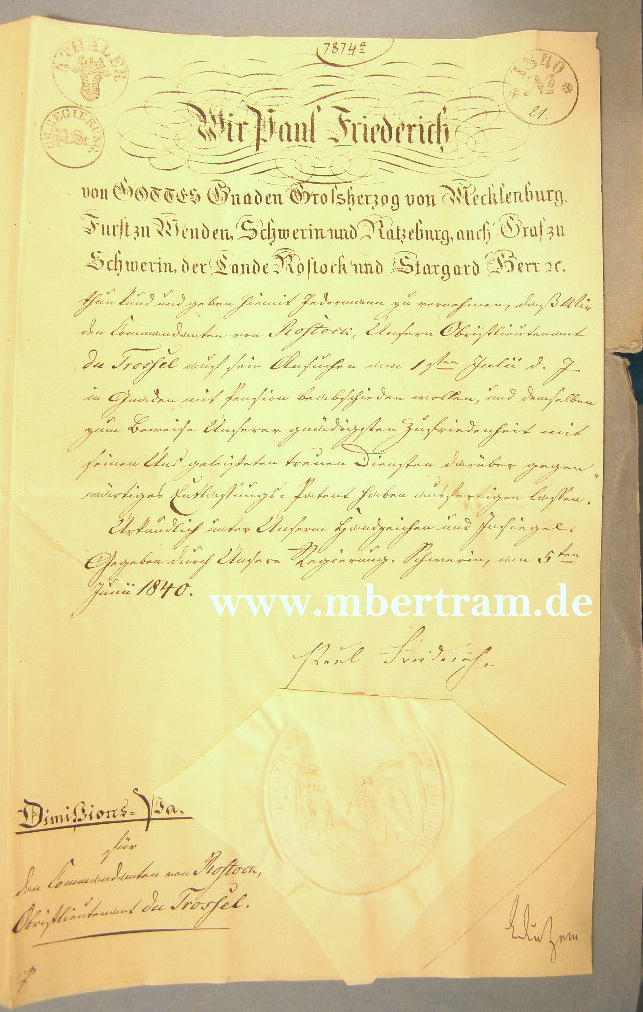 7874a
4 THALER
1840
No
21.
Wir Paul Friederich
von GOTTES Gnaden Grosherzog von Mecklenburg,
Furst zu Wenden, Schwerin und Ratzeburg, auch Graf zu
Schwerin, der Lande Rostock und Stargard Herr rc.
thun kund und geben hiemit Jedermann zu vernehmen, daß Wir
den Commandanten von Rostock, Unsern Obristlieutenant
du Trossel auf sein Ansuchen am 1sten Julii d. J.
in Gnaden mit Pension beabschieden wollen, und demselben
zum Beweise Unserer gnädigsten Zufriedenheit mit
seinen Uns geleisteten treuen Diensten darüber gegen
wärtiges Entlassungs-Patent haben ausfertigen lassen.
Urkundlich unter Unserm Handzeichen und Insiegel.
Gegeben durch Unsere Regierung. Schwerin, am 5ten
Junii 1840.
www.mbertram.de
Paul Friederich.
Dimißions-Pa.
für
den Commandanten von Rostock,
Obristlieutenant du Trossel.